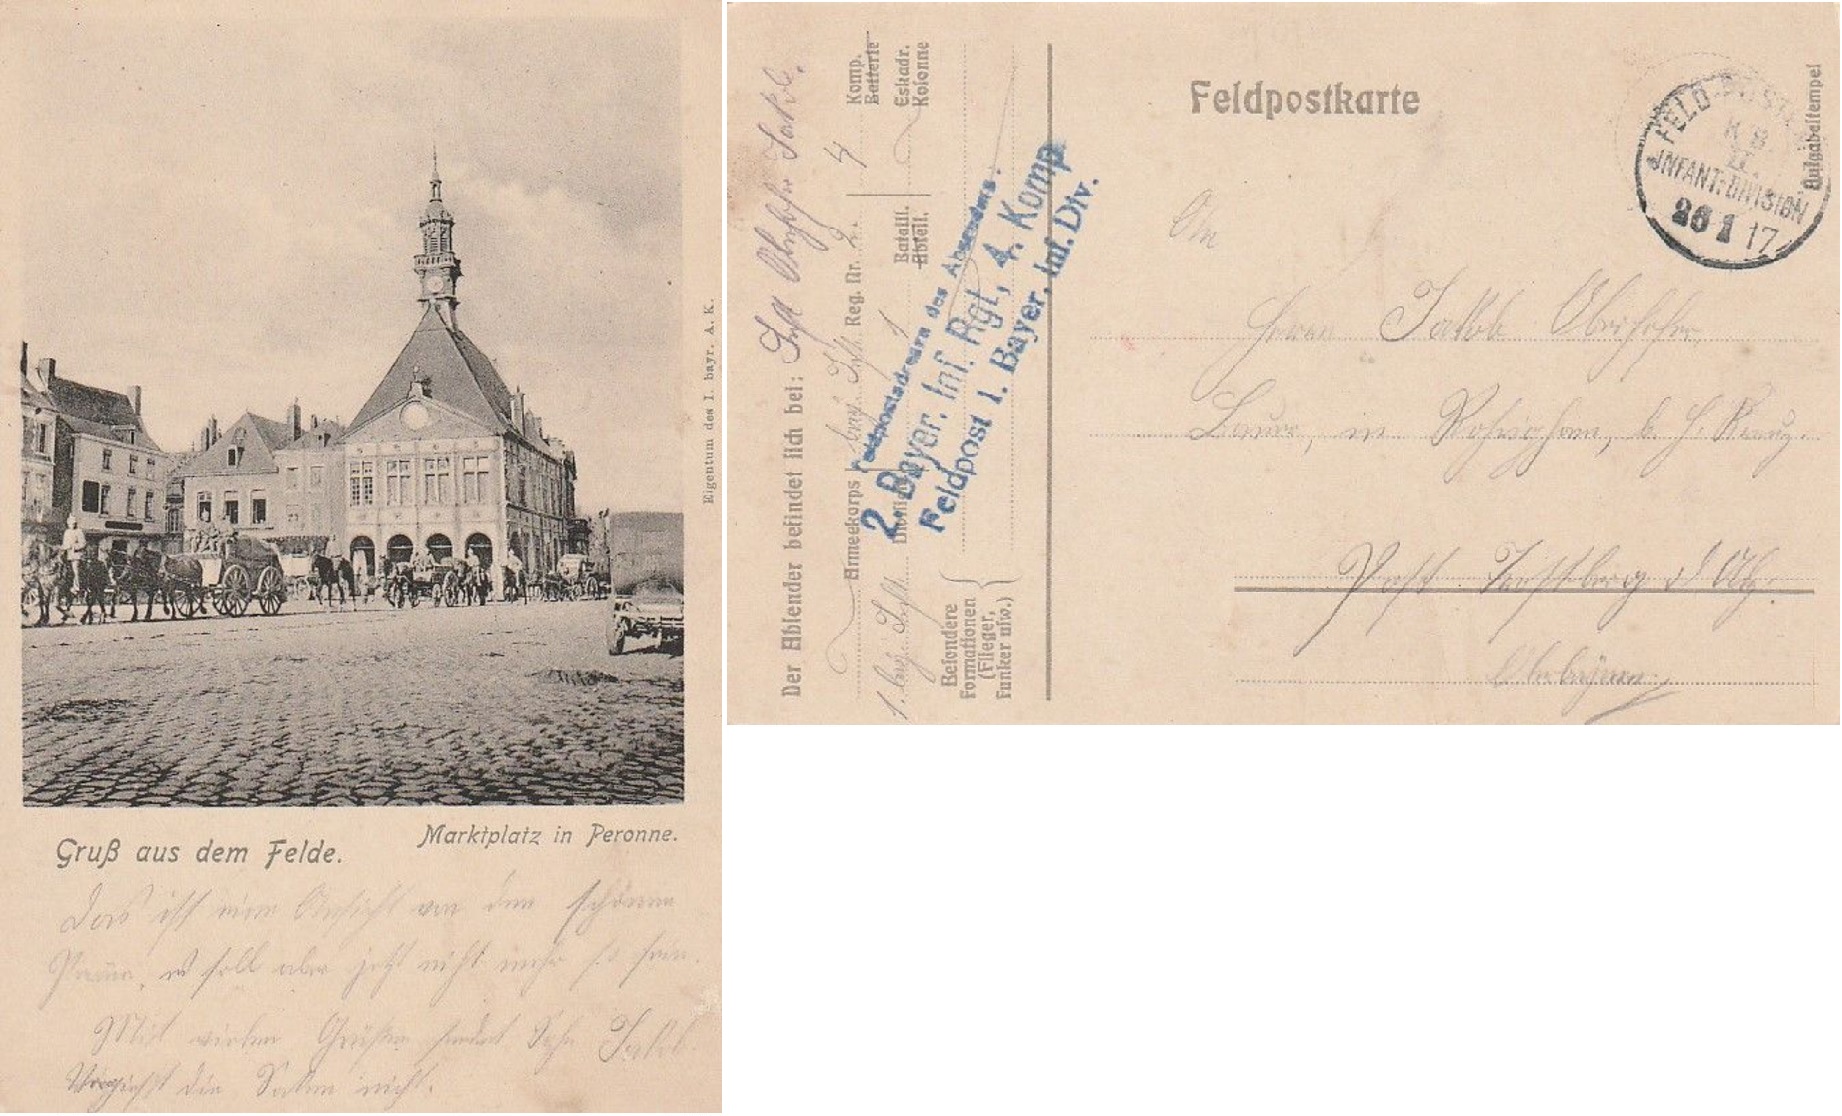 Eigentum des I. bayr. A. K.
Gruß aus dem Felde.
Marktplatz in Peronne.
Das ist eine Ansicht von dem schönen
es soll aber jetzt nicht mehr so sein.
Mit vielen Grüßen sendet Sohn Jakob.
Vergeßt die Saken nicht.
Der Absender befindet sich bei: Inft Oberhofer Jakob.
Armeekorps bay. Inft. Reg. Nr. 2. 4 Komp.
Batterie
1. bay. Inft. Division 1 Bataill.
Abteil.
Eskadr.
Kolonne
Besondere
Formationen
(Flieger,
Funker usw.)
Feldpostadresse des Absenders:
2. Bayer. Inf. Rgt, 4. Komp
Feldpost 1. Bayer. Inf. Div.
Feldpostkarte
Aufgabestempel
FELD-POST
K. B.
INFANT: DIVISION
26 1 17
An
Herrn Jakob Oberhofer,
Bauer, in
Post
Oberbayern.